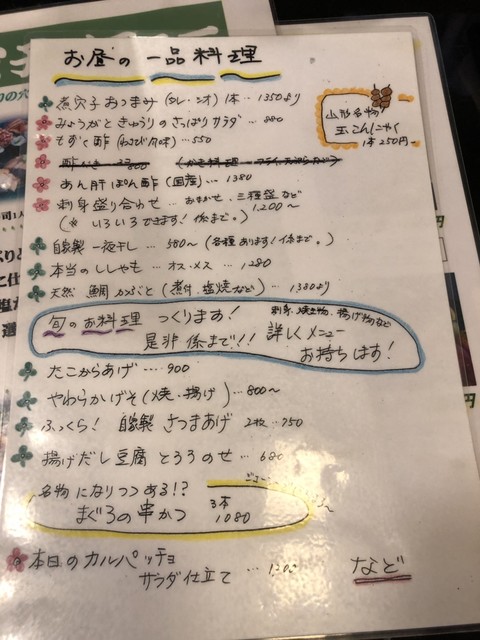 お昼の一品料理
煮穴子おつまみ(タレ・シオ)1本…1350より
みょうがときゅうりのさっぱりサラダ…880
もずく酢(わさび風味)…550
あん肝ぽん酢(国産)…1380
刺身盛り合わせ…おまかせ、三種盛など
1.200〜
(※いろいろできます!係まで。)
自家製一夜干し…580〜(各種あります!係まで。)
本当のししゃも…オス・メス…1280
天然 鯛かぶと(煮付、塩焼など)…1380より
山形名物!
玉こんにゃく
1本250円
旬のお料理 つくります!
是非係まで!!
刺身、焼き物、揚げ物など
詳しくメニュー
お持ちします!
たこからあげ…900
やわらかげそ(焼・揚げ)…800〜
ふっくら! 自家製 さつまあげ 2枚…750
揚げだし豆腐 とろろのせ…680
名物になりつつある!?
まぐろの串かつ 3本
1080
本日のカルパッチョ
サラダ仕立て…
など